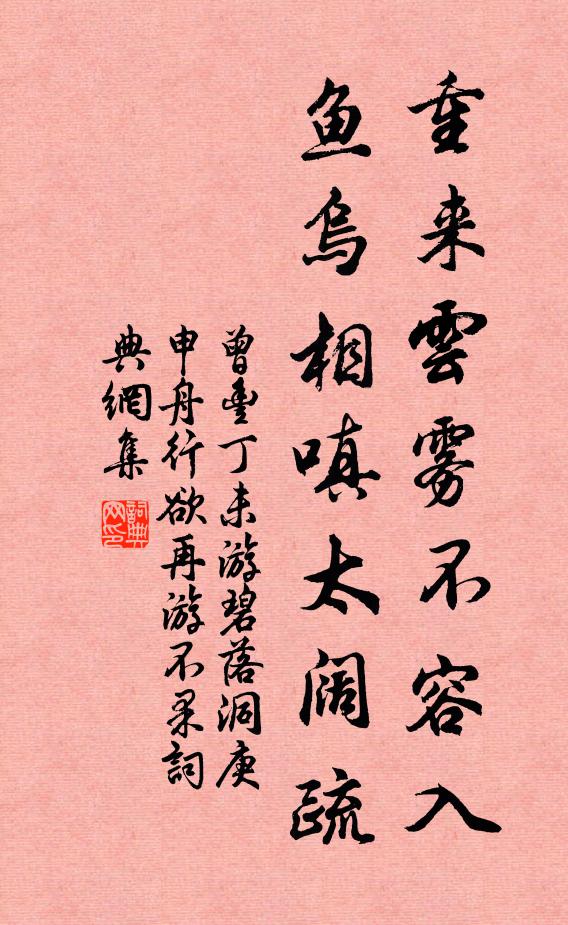 重来雲雾不容入
鱼鸟相嗔太阔疏
曾豊丁未游碧落洞庚
申舟行欲再游不果詞
典網集
詞典网印